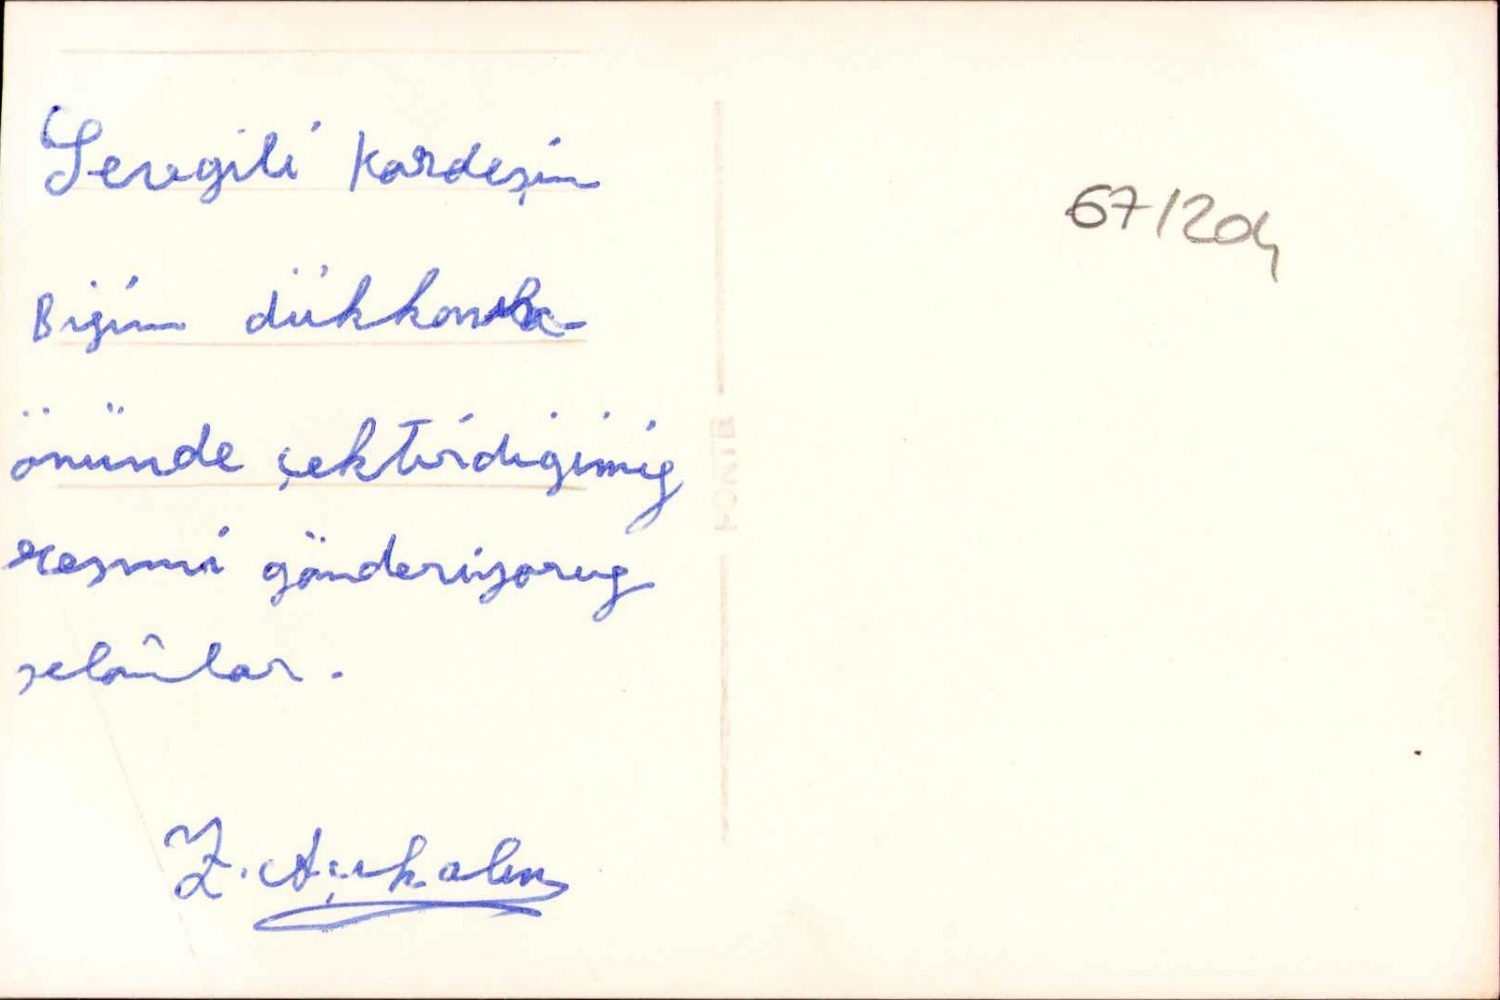 Sevgili kardeşim
Bizim dükkanın
önünde çektirdiğimiz
resmi gönderiyoruz
selâmlar.
Z. Açıkalın
67/204